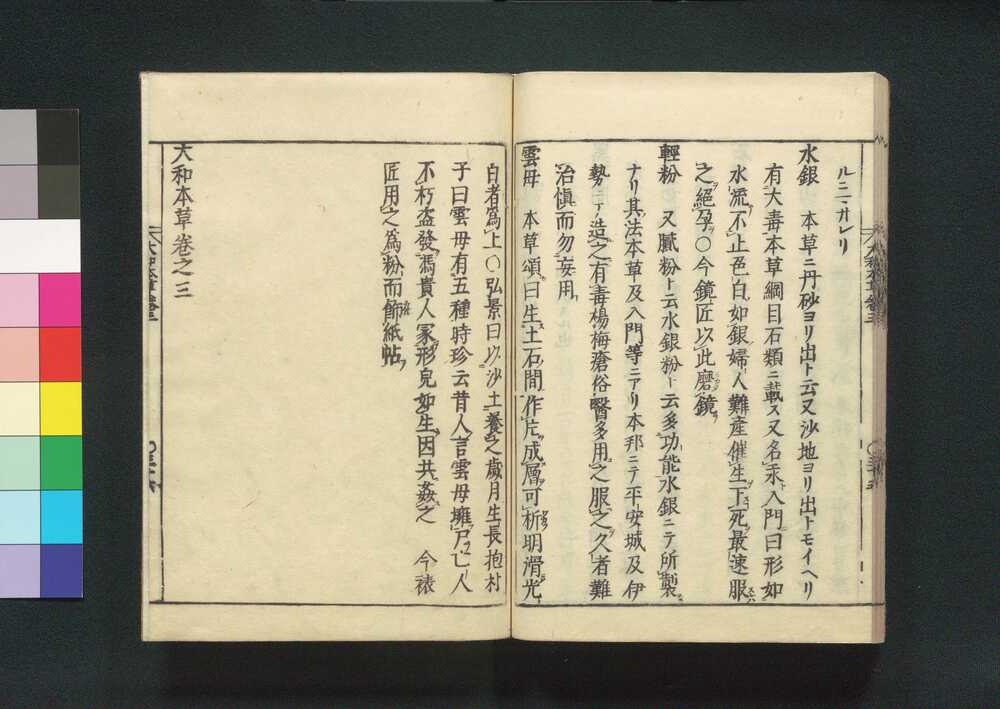 ルニオレリ
水銀 本草ニ丹砂ヨリ出ト云又沙地ヨリ出トモイヘリ
有大毒本草綱目石類ニ載ス又名汞入門曰形如
水流不止色白如銀婦人難産催生下死最速服
之絕孕〇今鏡匠以此磨鏡
輕粉 又膩粉ト云水銀粉ト云多功能水銀ニテ所製
ナリ其法本草及入門等ニアリ本邦ニテ平安城及伊
勢ニテ造之有毒楊梅瘡俗醫多用之服之久者難
治愼而勿妄用
雲母 本草頌曰生土石間作片成層可析明滑光
白者爲上〇弘景曰以沙土養之歲月生長抱村
子曰雲母有五種時珍云昔人言雲母壅尸亡人
不朽盜發馮貴人冢形皃如生因共姦之 今裱
匠用之爲粉而餙紙帖
大和本草卷之三